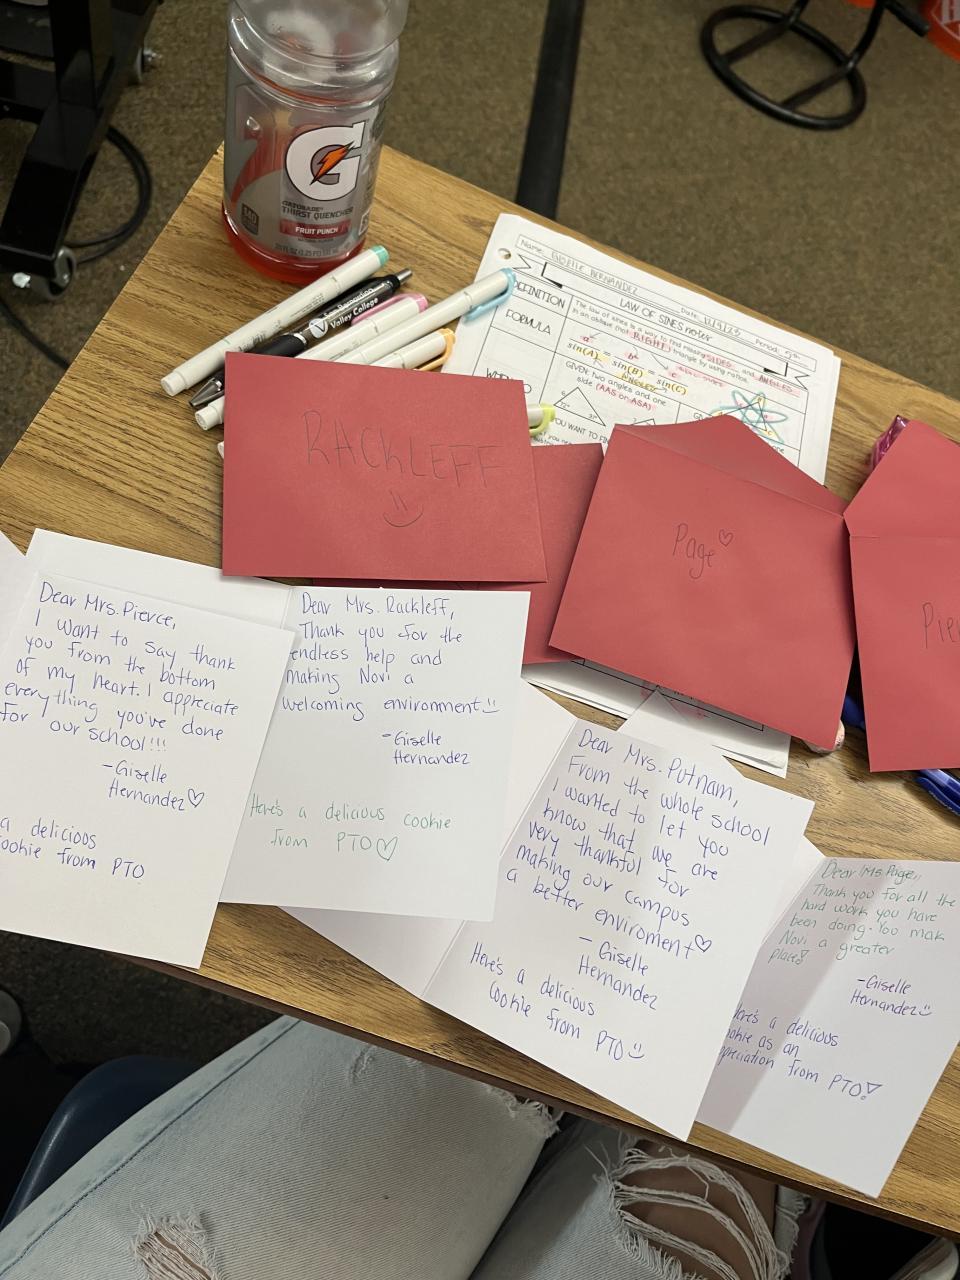 G
GATORADE
THIRST QUENCHER
FRUIT PUNCH
Valley College
Name: GISELLE HERNANDEZ
Date:
Period: 5th
LAW OF SINES notes
DEFINITION
The law of sines is a way to find missing SIDES and ANGLES
in an oblique (not RIGHT) triangle by using ratios.
FORMULA
a b c
sin(A) = sin(B) = sin(C)
GIVEN: two angles and one
side (AAS or ASA)
YOU WANT TO
RACKLEFF
Page
Dear Mrs. Pierce,
I want to say thank
you from the bottom
of my heart. I appreciate
everything you've done
for our school!!!
-Giselle
Hernandez♡
a delicious
cookie from PTO
Dear Mrs. Rackleff,
Thank you for the
endless help and
making Novi a
welcoming environment
-Giselle
Hernandez
Here's a delicious cookie
from PTO♡
Dear Mrs. Putnam,
From the whole school
I wanted to let you
know that we are
very thankful for
making our campus
a better enviroment♡
- Giselle
Hernandez
Here's a delicious
cookie from PTO
Dear Ms. Page,
Thank you for all the
hard work you have
been doing. You mak
Novi a greater
place!
-Giselle
Hernandez
Here's a delicious
cookie as an
appreciation from PTO!